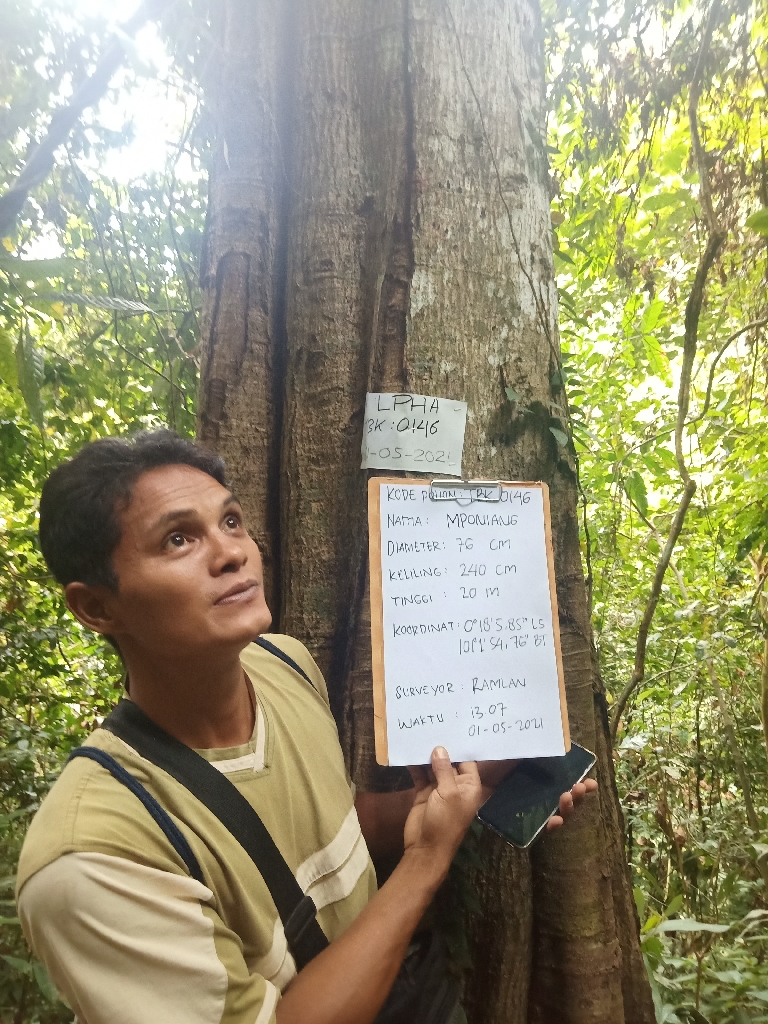 LPHA
BK : 0146
1-05-2021
KODE POHON : BK 0146
NAMA : MPONIANG
DIAMETER : 76 CM
KELILING : 240 CM
TINGGI : 20 M
KOORDINAT : 0°18'5.85" LS
101°1'54.76" BT
SURVEYOR : RAMLAN
WAKTU : 13.07
01-05-2021